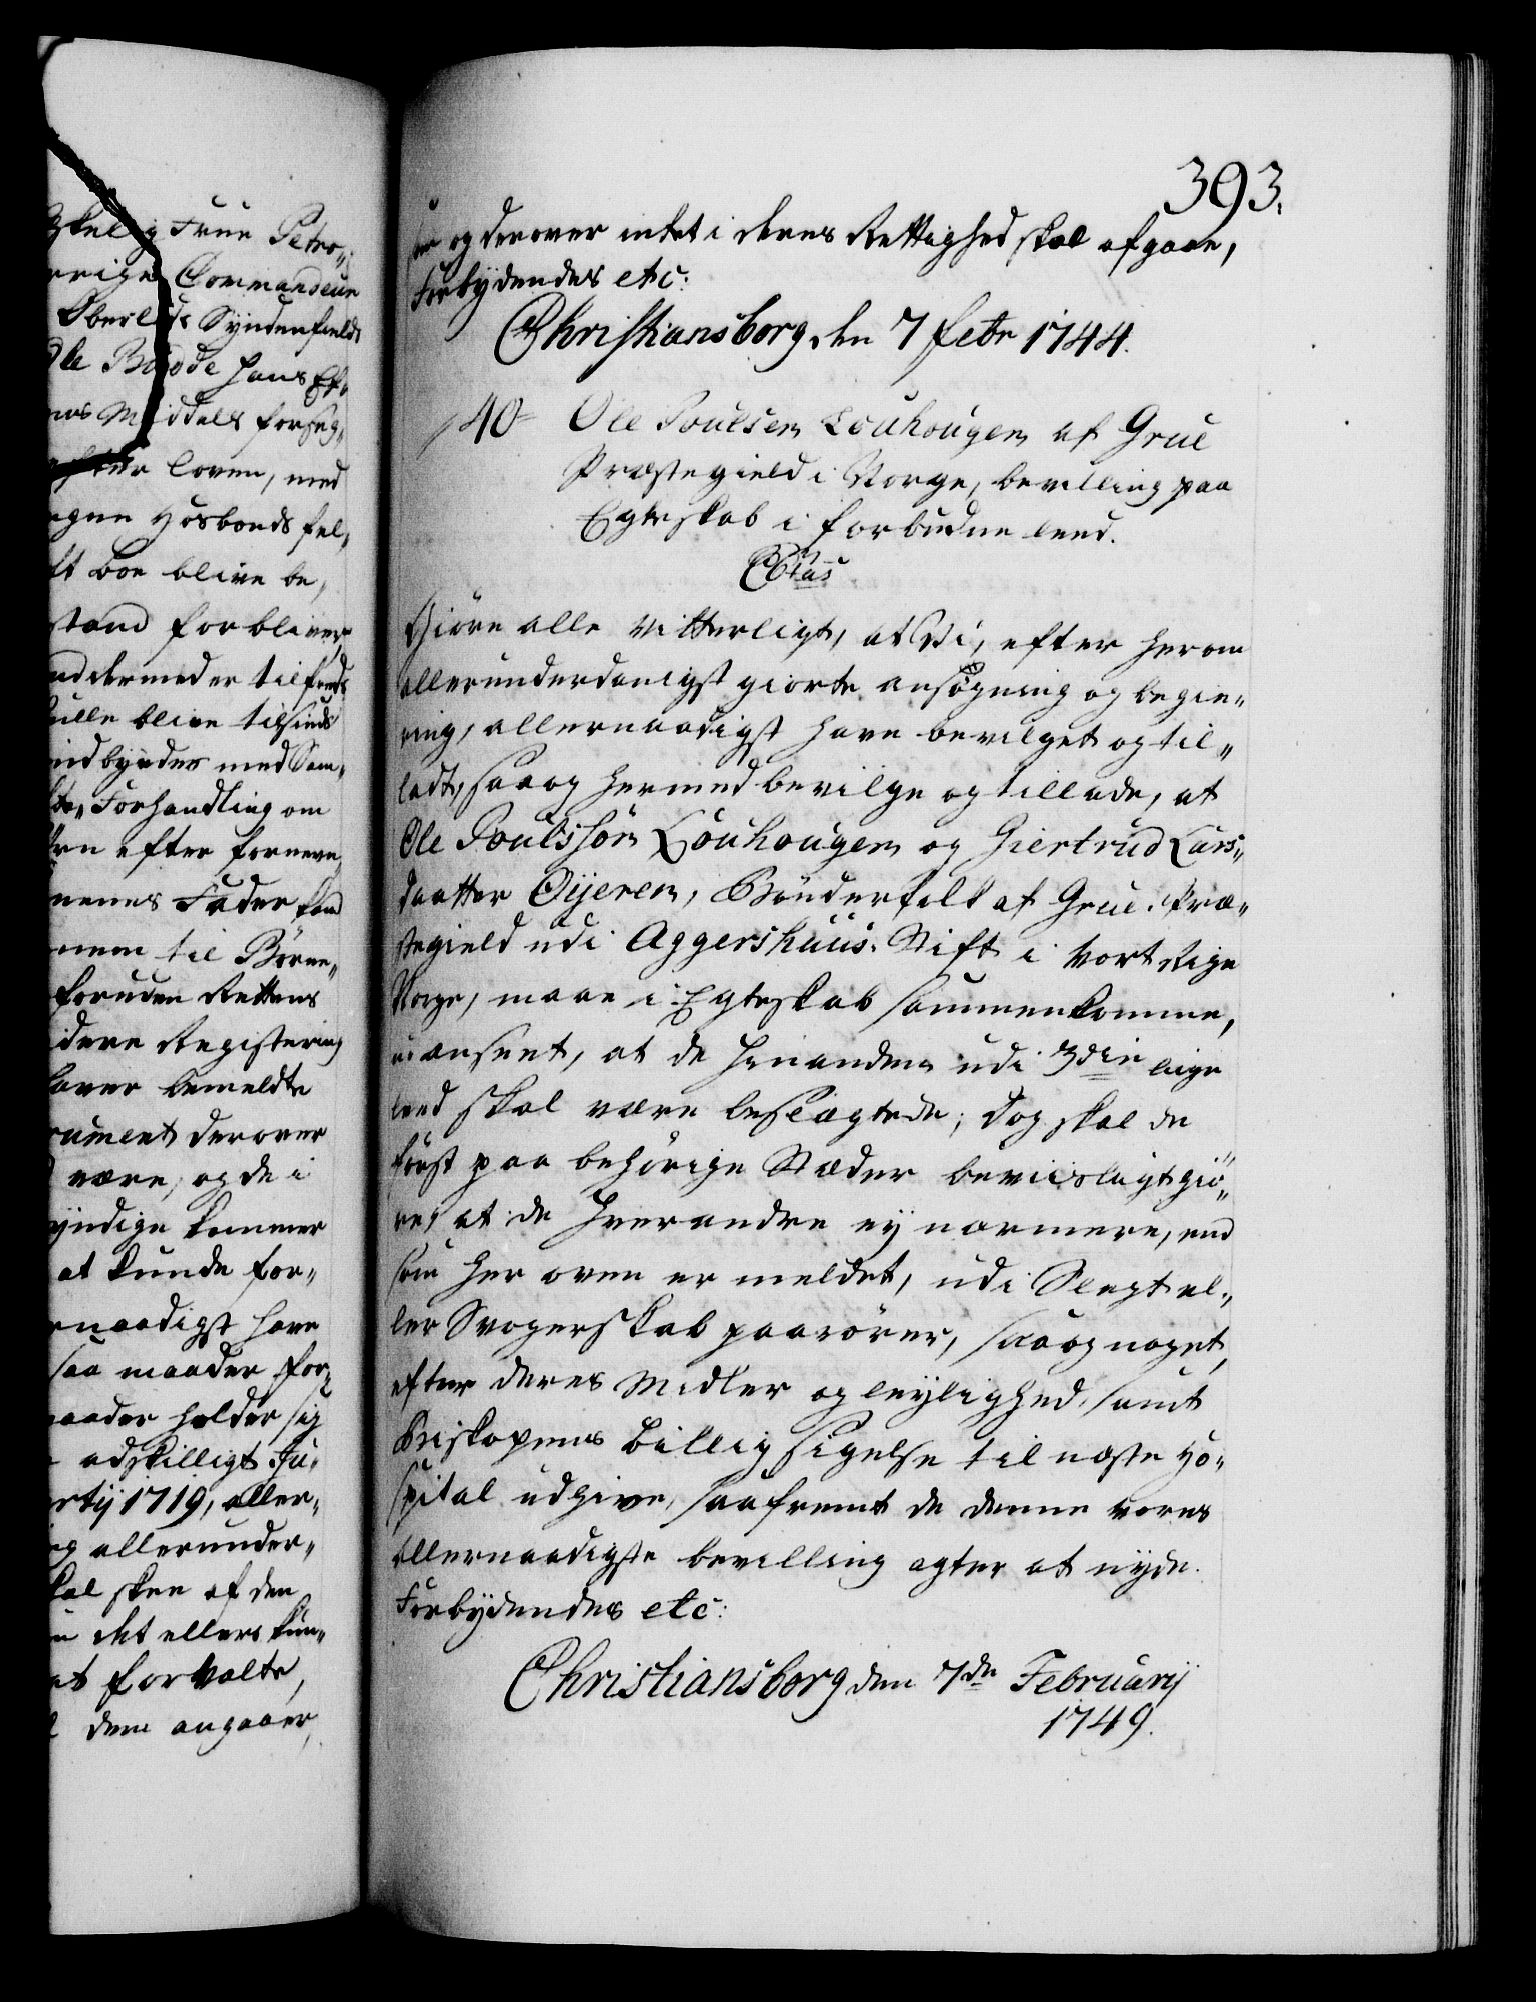 393.
og derover intet i deres Rettighed skal afgaae,
Forbydendes etc:
Christiansborg den 7 febr 1744.
40 Ole Poulsen Louhougen af Grue
Præstegield i Norge, bevilling paa
Egteskab i forbudne leed.
C6tus
Giøre alle vitterligt, at Vi, efter herom
allerunderdanigst giorte ansøgning og begie„
ring, allernaadigst have bevilget og til„
ladt, saa og hermed bevilge og tillade, at
Ole Poulssøn Louhougen og Giertrud Lars„
daatter Øijeren, Bønderfolk af Grue Præ„
stegield udi Aggershuus Stift i Vort Rige
Norge, maae i Egteskab sammenkomme,
uanseet, at de hinanden udi 3die lige
leed skal være beslægtede; dog skal de
først paa behørige Stæder beviisligt giø„
re, at de hverandre ey nærmere, end
som her oven er meldet, udi Slegt el„
ler Svogerskab paarører, saa og noget,
efter deres Midler og leylighed, samt
Biskopens billig sigelse til næste Ho„
spital udgive, saafremt de denne vores
allernaadigste bevilling agter at nyde.
Forbydendes etc:
Christiansborg den 7de Februarij
1749.
Frue Petro„
Commandeur
Syndenfields
Baade hans Ef„
Middels forseg„
loven, med
Hosbonds fel„
boe blive be„
stand forbliver,
dermed er tilfreds
blive tilsinds
indbydes med Sam„
Forhandling om
efter fornevn„
Fader
til Børne„
foruden Rettens
Registering
bemeldte
derover
være, og de i
myndige kommer
at kunde for„
have
saa maader for„
holder sig
adskilligt
1719, aller„
allerunder„
skee af den
det ellers kun„
forvolte,
dem angaaer,